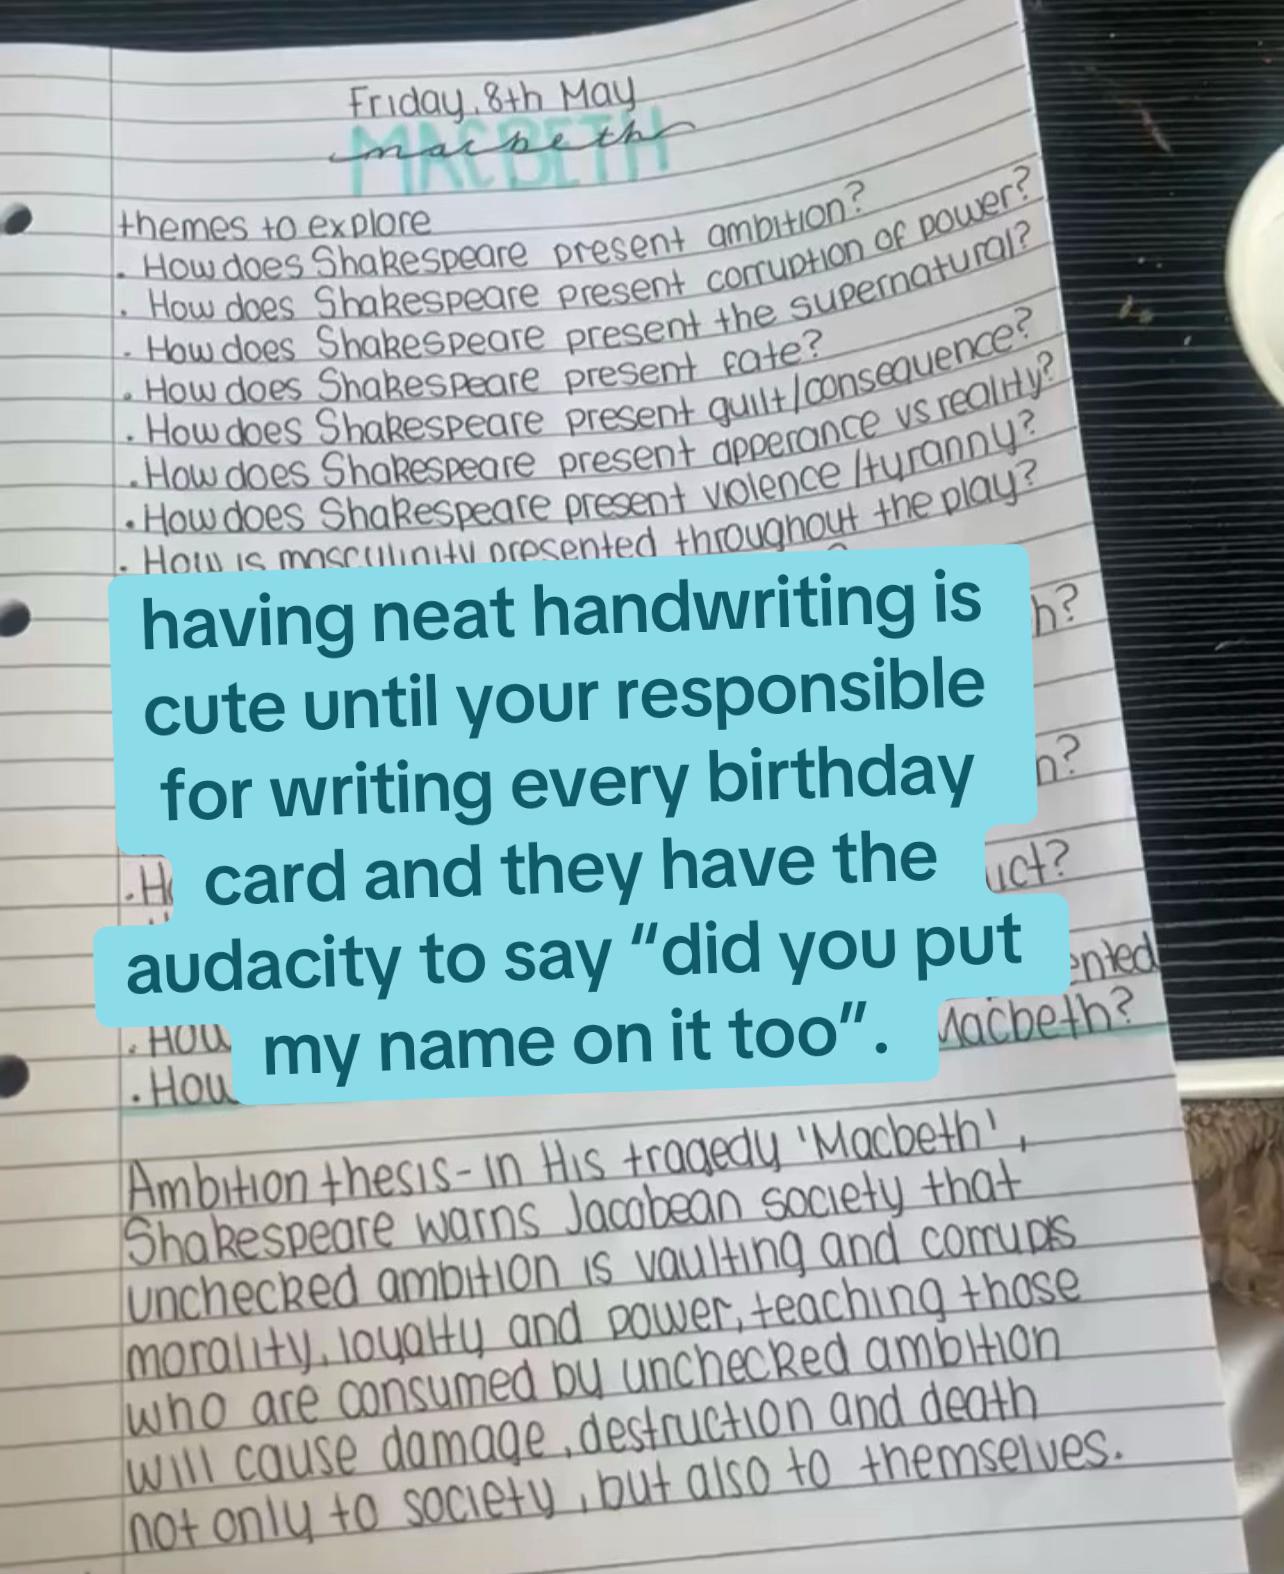 Friday, 8th May
MACBETH
macbeth
themes to explore
. How does Shakespeare present ambition?
. How does Shakespeare present corruption of power?
. How does Shakespeare present the supernatural?
. How does Shakespeare present fate?
. How does Shakespeare present guilt/consequence?
. How does Shakespeare present apperance vs reality?
. How does Shakespeare present violence/tyranny?
. How is masculinity presented throughout the play?
having neat handwriting is
cute until your responsible
for writing every birthday
card and they have the
audacity to say “did you put
my name on it too”.
Macbeth?
Ambition thesis - in His tragedy 'Macbeth',
Shakespeare warns Jacobean society that
unchecked ambition is vaulting and corrupts
morality, loyalty and power, teaching those
who are consumed by unchecked ambition
will cause damage, destruction and death
not only to society, but also to themselves.